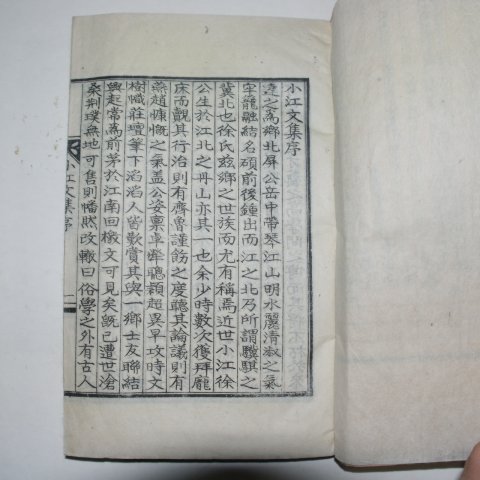 小江文集序
達之爲鄉北屏公岳中帶琴江山明水麗淸淑之氣
牢籠融結名碩前後鍾出而江之北乃所謂驥騏之
冀北也徐氏玆鄉之世族而尤有稱焉近世小江徐
公生於江北之丹山亦其一也余少時數次獲拜龐
床而觀其行治則有齊魯謹飭之度聽其論議則有
燕趙慷慨之氣盖公姿稟卓犖聰穎超異早攻時文
樹幟莊壇筆下滔滔人皆歎賞其與一鄉士友聯結
興起常爲前茅於江南回檄文可見矣旣已遭世滄
桑荆璞無地可售則幡然改轍曰俗學之外有古人
小江文集序